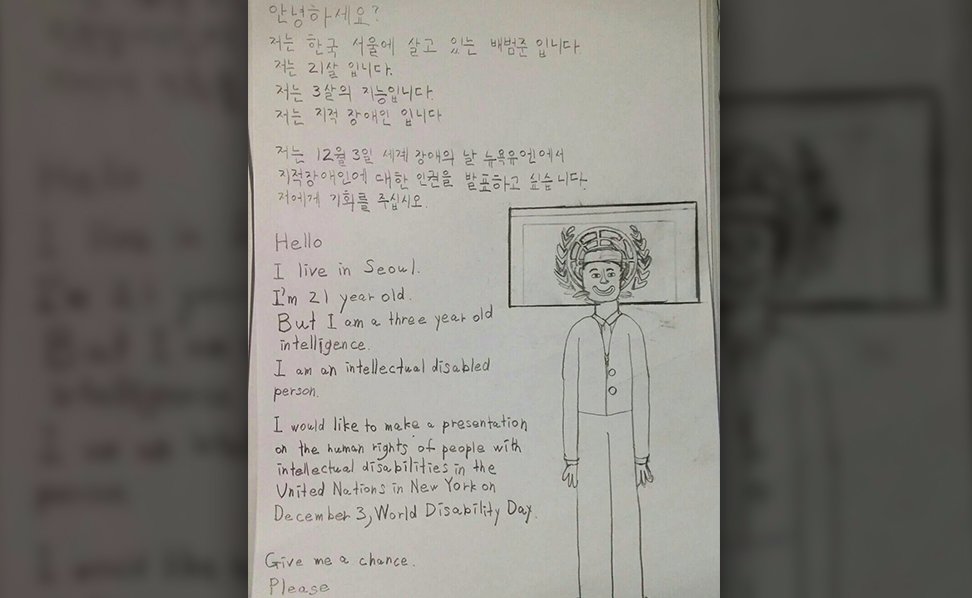 안녕하세요?
저는 한국 서울에 살고 있는 배범준 입니다
저는 21살 입니다.
저는 3살의 지능입니다.
저는 지적 장애인 입니다
저는 12월 3일 세계 장애의 날 뉴욕유엔에서
지적장애인에 대한 인권을 발표하고 싶습니다.
저에게 기회를 주십시오.
Hello
I live in Seoul.
I'm 21 year old.
But I am a three year old
intelligence.
I am an intellectual disabled
person.
I would like to make a presentation
on the human rights of people with
intellectual disabilities in the
United Nations in New York on
December 3, World Disability Day.
Give me a chance.
Please